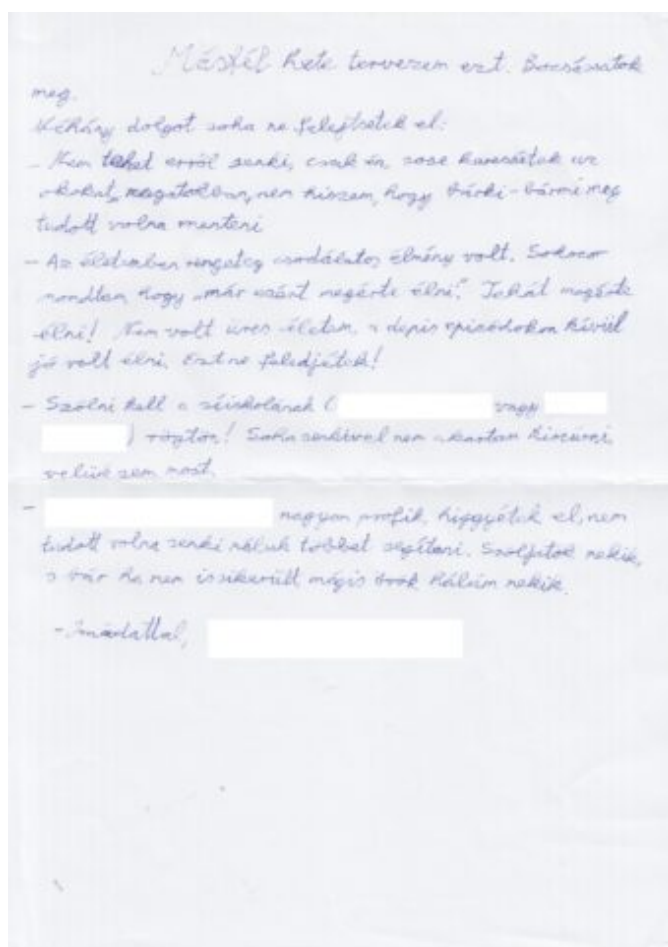 Másfél hete tervezem ezt. Bocsássatok
meg.
Néhány dolgot soha ne felejtsetek el:
- Nem tehet erről senki, csak én, sose keressétek az
okokat magatokban, nem hiszem, hogy bárki-bármi meg
tudott volna menteni
- Az életemben rengeteg csodálatos élmény volt. Sokszor
mondtam, hogy "már ezért megérte élni!" Tehát megérte
élni! Nem volt üres életem, a depis epizódokon kívül
jó volt élni. Ezt ne feledjétek!
- Szólni kell a síiskolának ( vagy
) rögtön! Soha senkivel nem akartam kiszúrni,
velük sem most.
- nagyon profik, higgyétek el, nem
tudott volna senki náluk többet segíteni. Szóljatok nekik,
s bár ha nem is sikerült, mégis örök hálám nekik.
- Imádattal,